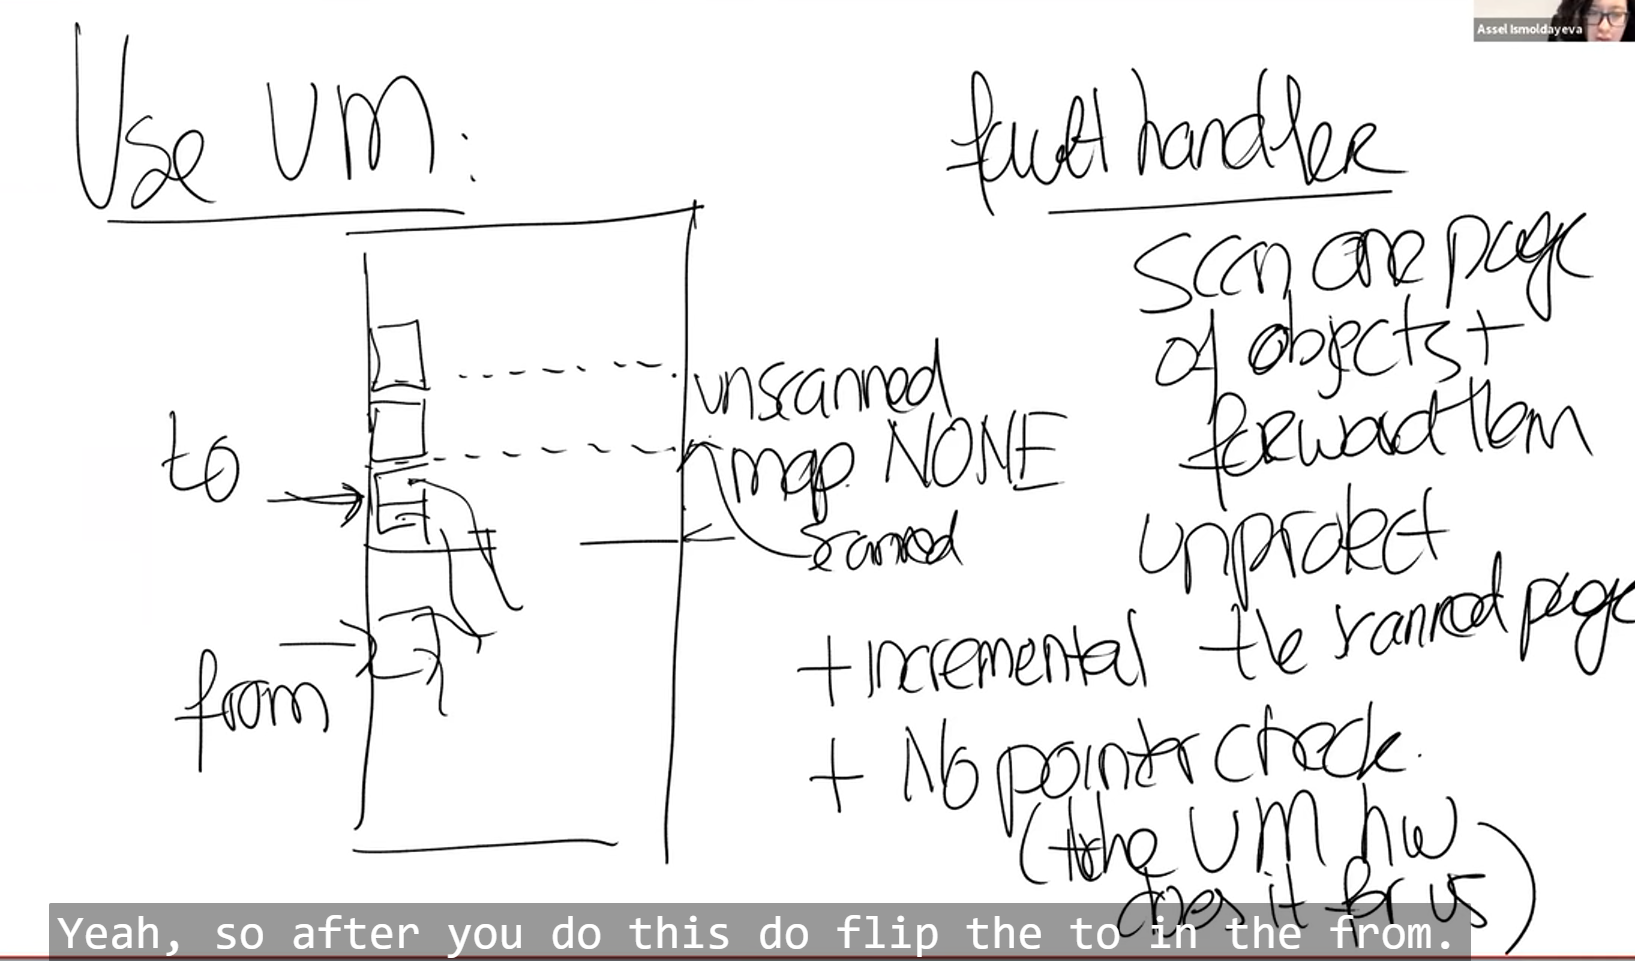 Assel Ismoldayeva
Use VM:
to
from
unscanned
map NONE
scanned
fault handler
scan one page
of objects +
forward them
unprotect
the scanned page
+ incremental
+ No pointer check.
(the VM hw
does it for us)
Yeah, so after you do this do flip the to in the from.